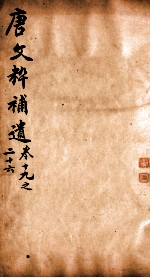 唐文粹補遺卷十九之
二十六